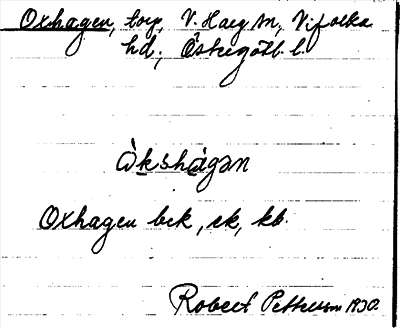 Oxhagen, torp, V. Harg sn, Vifolka
hd, Östergötl. l.
òkshàgən
Oxhagen bck, ek, kb.
Robert Petterson 1930.